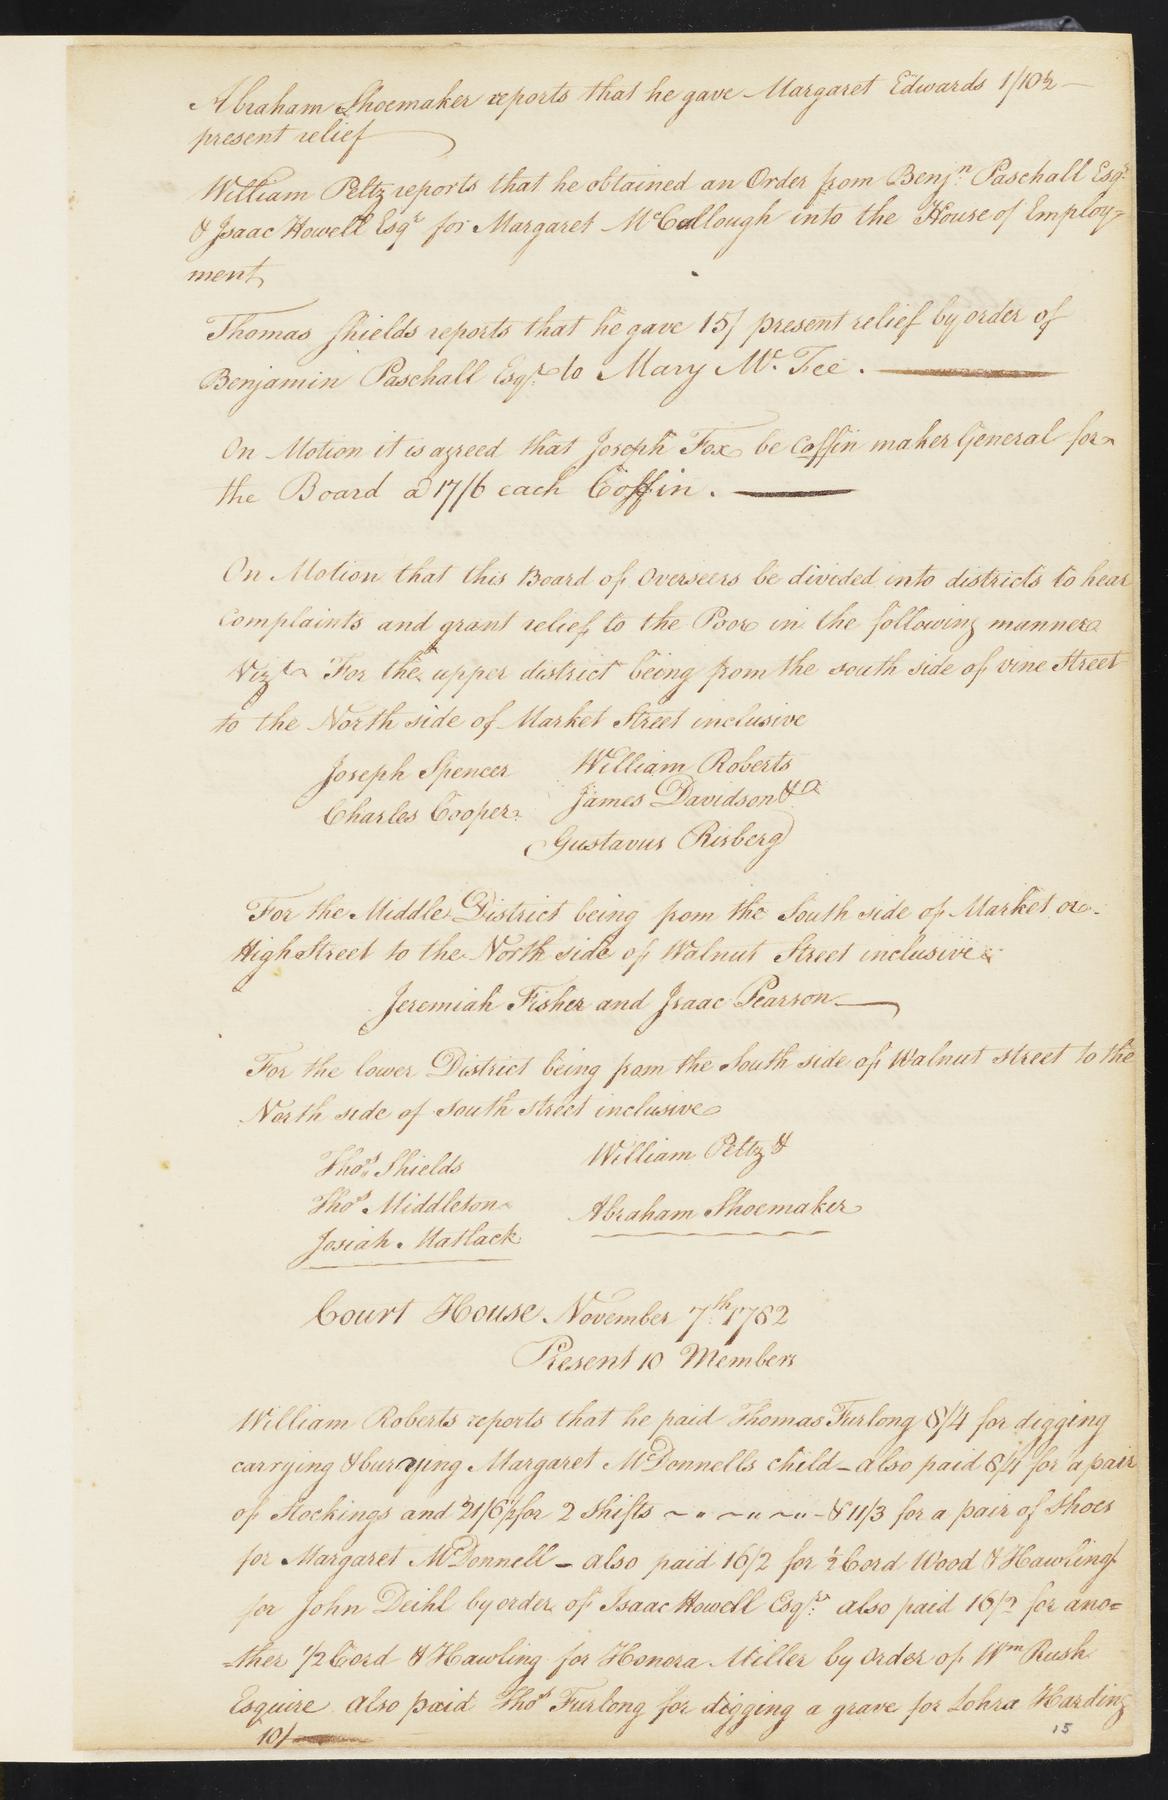 Abraham Shoemaker reports that he gave Margaret Edwards 1/10½ —
present relief
William Peltz reports that he obtained an Order from Benjn. Paschall Esqr.
& Isaac Howell Esqr for Margaret McCullough into the House of Employ=
ment
Thomas Shields reports that he gave 15/ present relief by order of
Benjamin Paschall Esqr. to Mary Mc. Fee. —
On Motion it is agreed that Joseph Fox be Coffin maker General for
the Board a 17/6 each Coffin. —
On Motion that this Board of Overseers be divided into districts to hear
Complaints and grant relief to the Poor in the following manner
Vizt For the upper district being from the south side of vine Street
to the North side of Market Street inclusive
Joseph Spencer William Roberts
Charles Cooper James Davidson &
Gustavus Risberg
For the Middle District being from the South side of Market or
High Street to the North side of Walnut Street inclusive
Jeremiah Fisher and Isaac Pearson —
For the lower District being from the South side of Walnut street to the
North side of South Street inclusive
Thos. Shields William Peltz &
Thos. Middleton Abraham Shoemaker
Josiah Matlack
Court House November 7th. 1782
Present 10 Members
William Roberts reports that he paid Thomas Furlong 8/4 for digging
carrying & burying Margaret McDonnells child – also paid 8/4 for a pair
of Stockings and 21/6 for 2 Shifts ~ " ~ ~ " ~ " – & 11/3 for a pair of Shoes
for Margaret McDonnell – also paid 16/2 for ½ Cord Wood & Hawling
for John Deihl by order of Isaac Howell Esqr. also paid 16/2 for ano=
=ther 1/2 Cord & Hawling for Honora Miller by Order of Wm Rush
Esquire also paid Thos Furlong for digging a grave for Lohra Harding
10/ —
15